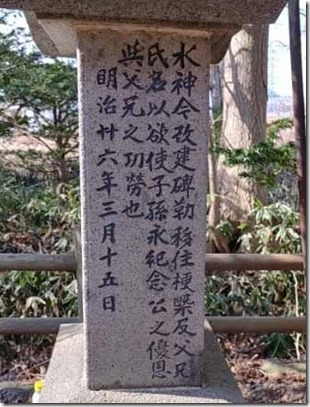 水神令改建碑勒移住梗槩及父兄
氏名以欲使子孫永紀念公之優恩
与父兄之功勞也
明治卅六年三月十五日